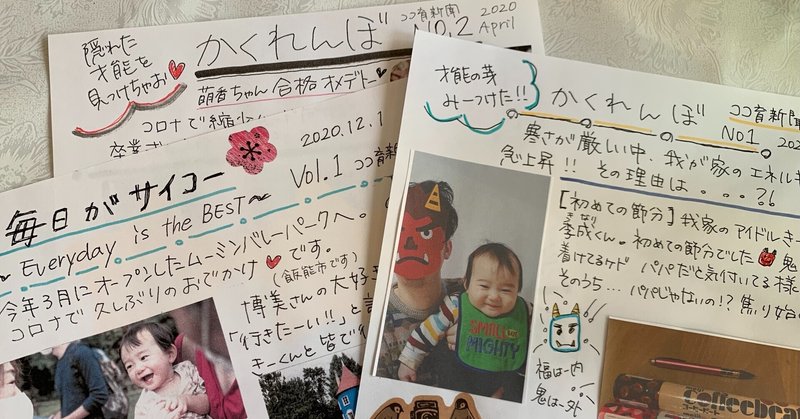 隠れた
才能を
見つけちゃお
かくれんぼ
ココ育新聞
NO.2
2020
April
萌香ちゃん合格オメデトー
コロナで縮
卒業
2020.12.1
毎日がサイコー
Vol.1 ココ育新
～Everyday is the BEST～
今年3月にオープンしたムーミンバレーパークへ。
コロナで久しぶりのおでかけです。
(飯能市です)
博美さんの大好
「行きたーい!!」と
きーくんと皆で
才能の芽
みーつけた!!
かくれんぼ
ココ育新聞
NO1.
寒さが厳しい中、我が家のエネルギ
急上昇!! その理由は...?!
【初めての節分】我家のアイドルき
季成くん。初めての節分でした 鬼
着けてるケド パパだと気付いてる様
そのうち...パパじゃないの!? 焦り始め
SMALL BUT
MIGHTY
福は一内
鬼は一外
Coffeebea